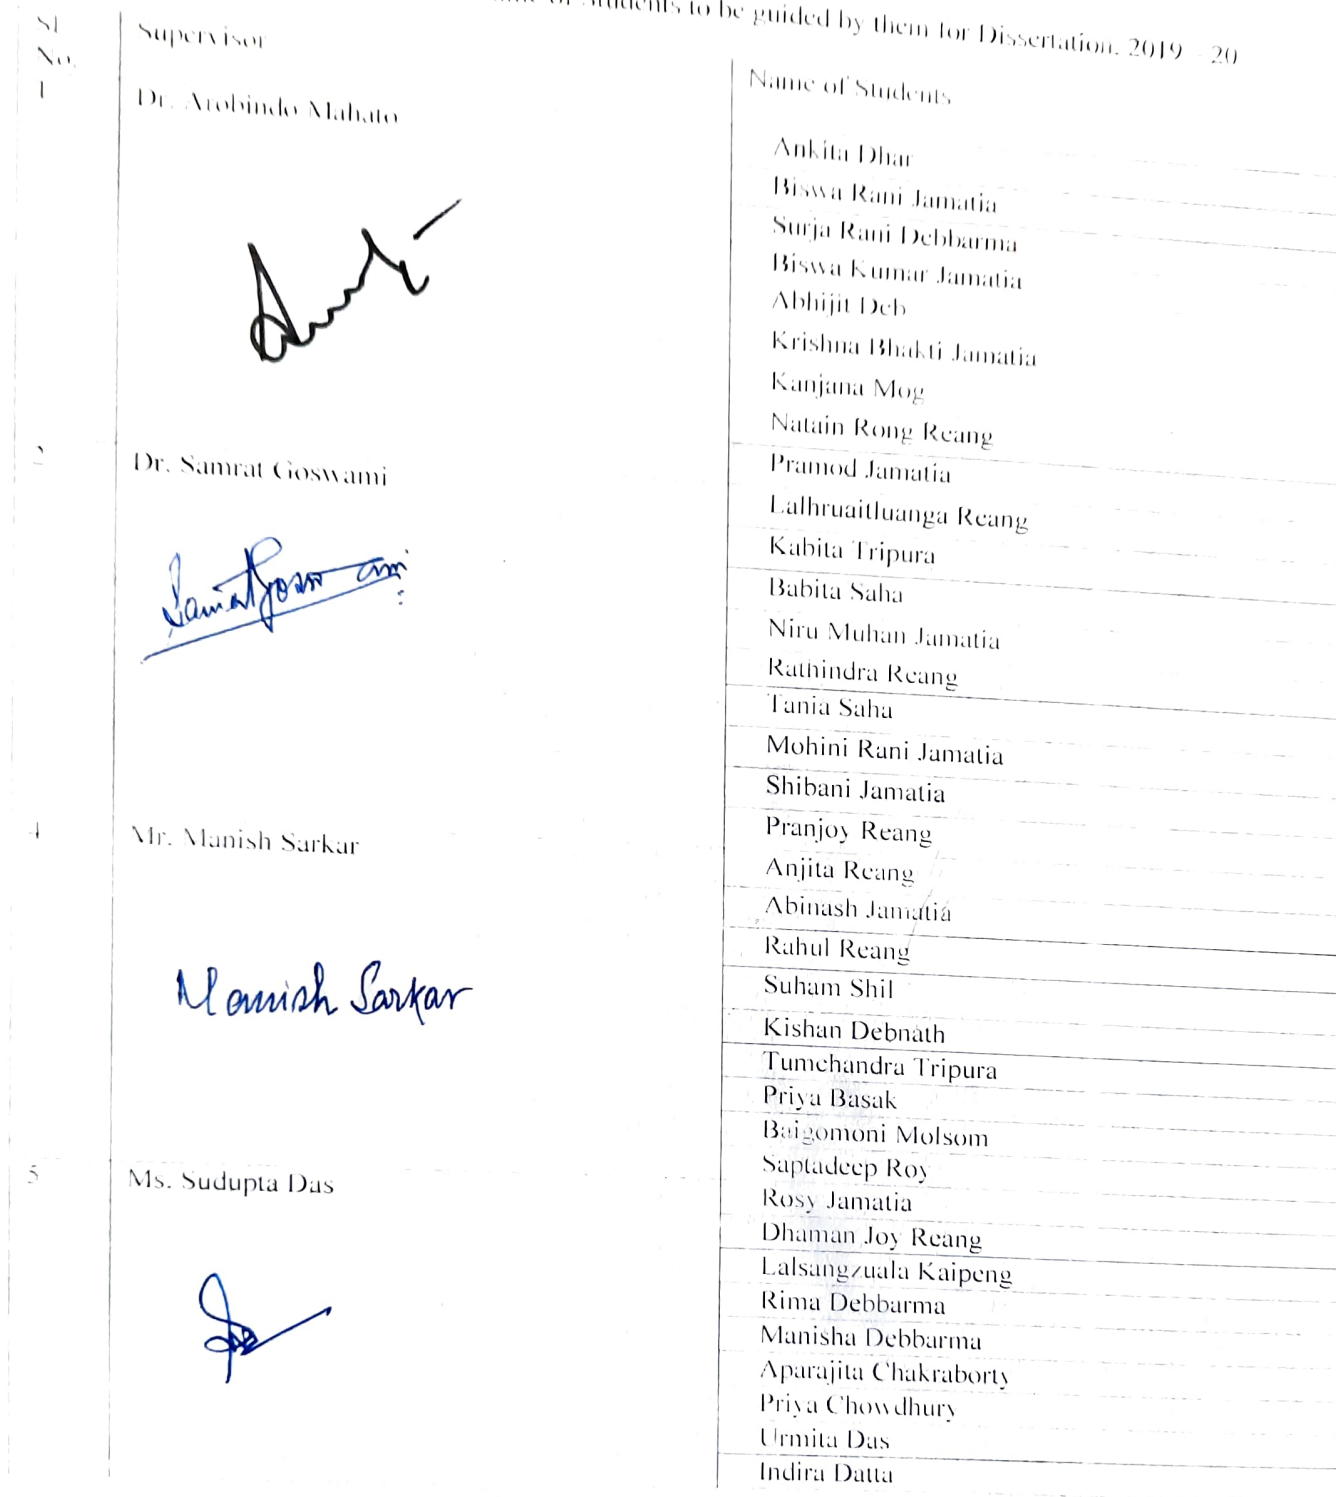 Students to be guided by them for Dissertation. 2019 - 20
Sl
No.
Supervisor
Name of Students
1
Dr. Arobindo Mahato
Ankita Dhar
Biswa Rani Jamatia
Surja Rani Debbarma
Biswa Kumar Jamatia
Abhijit Deb
Krishna Bhakti Jamatia
Kanjana Mog
Natain Rong Reang
2
Dr. Samrat Goswami
Samrat Goswami
Pramod Jamatia
Lalhruaitluanga Reang
Kabita Tripura
Babita Saha
Niru Muhan Jamatia
Rathindra Reang
Tania Saha
Mohini Rani Jamatia
Shibani Jamatia
4
Mr. Manish Sarkar
Manish Sarkar
Pranjoy Reang
Anjita Reang
Abinash Jamatia
Rahul Reang
Suham Shil
Kishan Debnath
Tumchandra Tripura
Priya Basak
Baigomoni Molsom
5
Ms. Sudupta Das
Saptadeep Roy
Rosy Jamatia
Dhaman Joy Reang
Lalsangzuala Kaipeng
Rima Debbarma
Manisha Debbarma
Aparajita Chakraborty
Priya Chowdhury
Urmita Das
Indira Datta